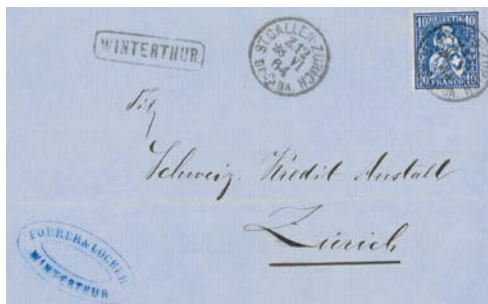 WINTERTHUR
ST GALLEN-ZÜRICH
Z 12
VI
64
10 HELVETIA 10
10 10
Tit
Schweiz. Kredit Anstalt
Zürich
FORRER & LOCHER
WINTERTHUR